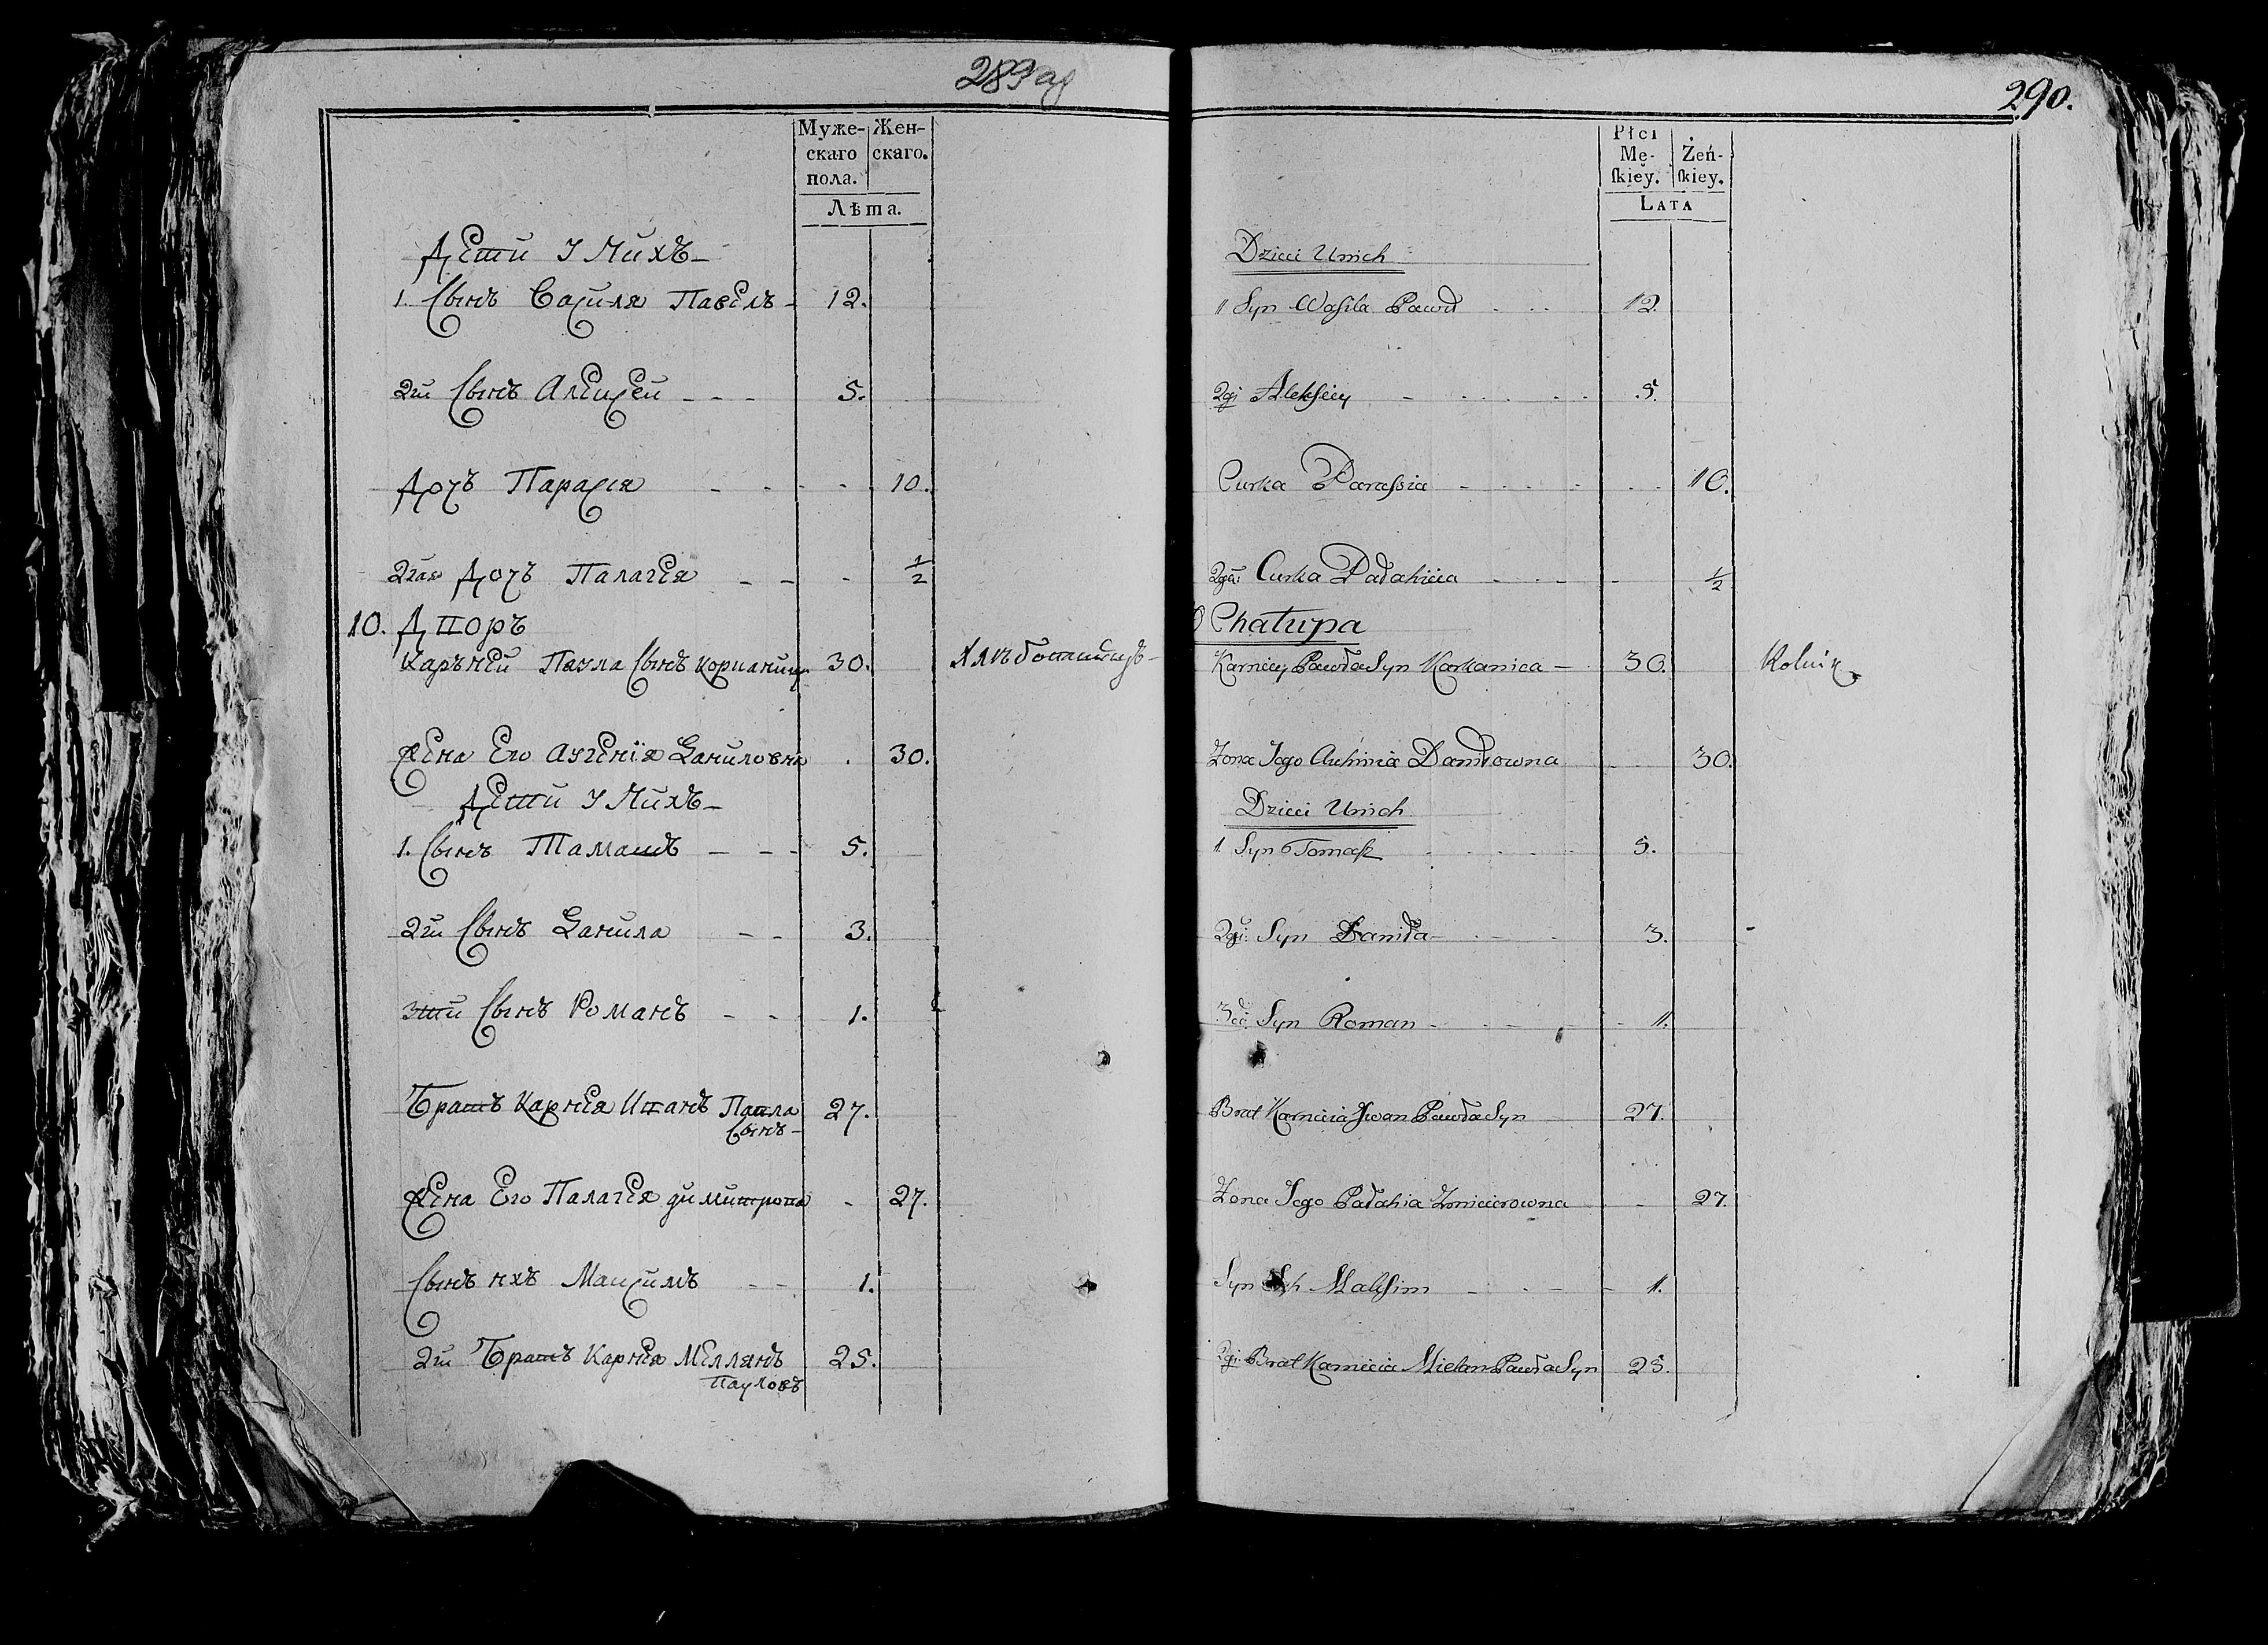 289 об
Муже-
скаго
пола.
Жен-
скаго.
Лѣта.
Дети у Нихъ
1. Сынъ Василя Павелъ 12.
2й Сынъ Алексей 5.
Дочъ Парасія 10.
2гая Дочъ Палагея ½
10. Дворъ
Карьней Павла Сынъ 30. Хлѣбопашецъ
Жена Его Аугенія Даниловна 30.
Дети у Нихъ
1. Сынъ Тамашъ 5.
2й Сынъ Данила 3.
3тий Сынъ Романъ 1.
Братъ Карнея Иванъ Павла 27.
Сынъ
Жена Его Палагея 27.
Сынъ ихъ Максимъ 1.
2й Братъ Карнея Меллянъ 25.
Пауловъ
290.
Płci
Mę-
ſkiéy.
Żeń-
ſkiey.
LATA
Dzieci Unich
1 Syn Wasila Paweł 12
2gi Aleksiey 5.
Curka Parassia 10.
2ga Curka Pałahieia ½
Chałupa
Karniey Pawła Syn Karkanica 30. Rolnik
Żona Jego Auhinia Daniłowna 30.
Dzieci Unich
1 Syn Tomasz 5.
2gi Syn Daniła 3.
3ci Syn Roman 1.
Brat Karnieia Jwan Pawła Syn 27.
Żona Jego Pałahia Zmicierowna 27.
Syn Ich Maksim 1.
2gi Brat Karnieia Mielan Pawła Syn 25.